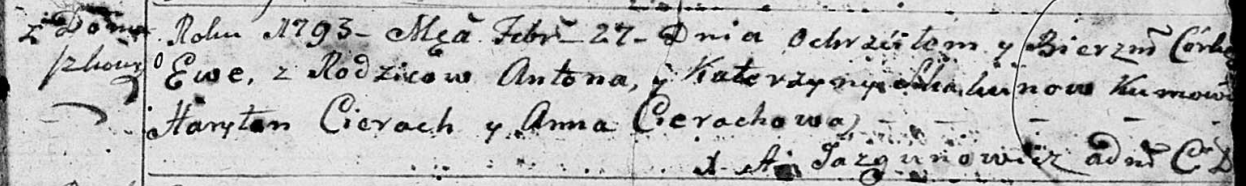 z Doma
szkowicz
Roku 1793 - Mca Febr - 27 - Dnia ochrzciłem y Bierzm Córkę
Ewe, z Rodzicow Antona, y Katerzyny Kumow
Haryton Cierach y Anna Cierachowa,
X. A. Jazgunowicz adm C D